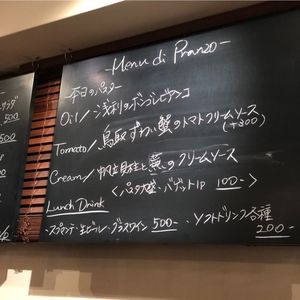 -Menu di Pranzo-
-本日のパスタ-
Oil/浅利のボンゴレビアンコ
Tomato/鳥取ずわい蟹のトマトクリームソース
(+300)
Cream/帆立貝柱と蕪のクリームソース
<パスタ大盛・バゲット1P 100->
Lunch Drink
・スプマンテ・生ビール・グラスワイン 500-
・ソフトドリンク各種
200-
サラダ
500
500